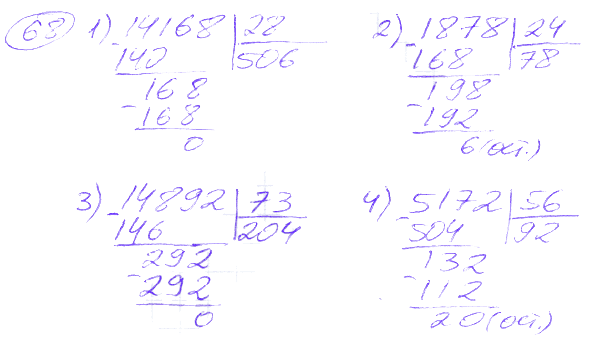 68 1) 14168 | 28
- 140 | 506
168
- 168
0
2) 1878 | 24
- 168 | 78
198
- 192
6 (ост.)
3) 14892 | 73
- 146 | 204
292
- 292
0
4) 5172 | 56
- 504 | 92
132
- 112
20 (ост.)